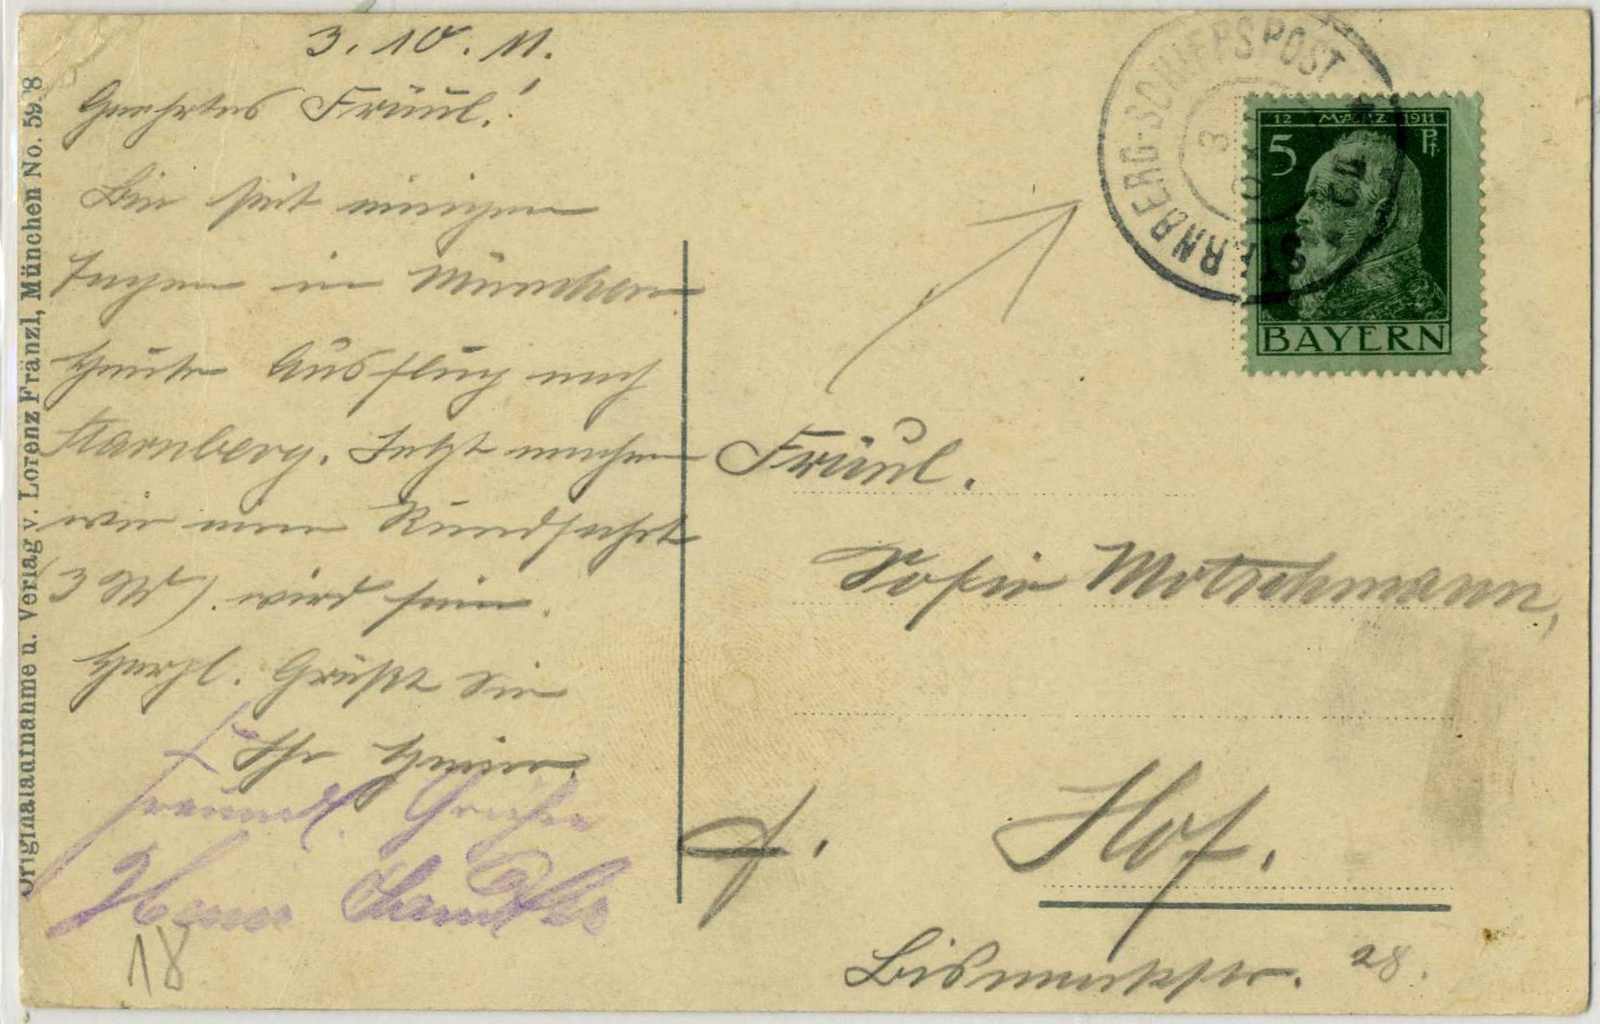 3. 10. 11.
Geehrtes Fräul.!
Bin seit einigen
Tagen in München
Heute Ausflug nach
Starnberg. Jetzt machen
wir eine Rundfahrt
(3 M). wird fein.
Herzl. Grüßt Sie
Ihr
freundl. Grüße
Originalaufnahme u. Verlag v. Lorenz Fränzl, München No. 59 8
STARNBERG-SCHIFFSPOST
3
12
12 MÆRZ 1911
5 Pf
BAYERN
Fräul.
Sofie Motschmann,
Hof.
Bismarckstr. 28.
18